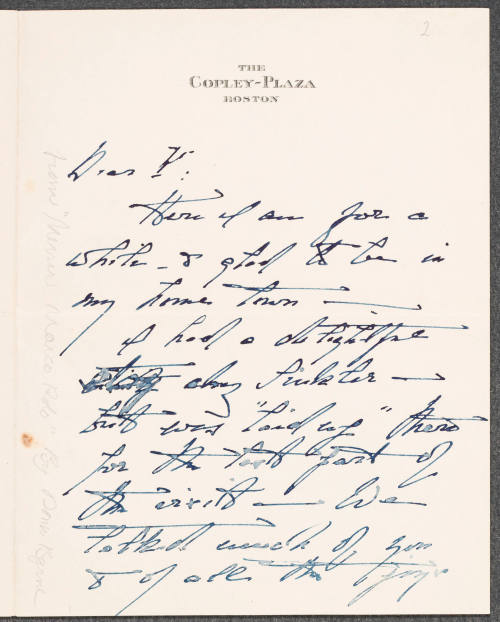 2
THE
COPLEY-PLAZA
BOSTON
Dear V:
Here I am for a
while - & glad to be in
my home town —
I had a delightful
chez —
but was "laid up" there
for the last part of
the visit — We
talked much of you
& of all the joys
from